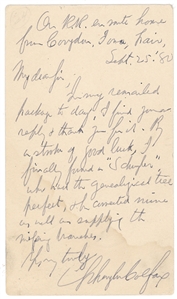 On R.R. en route home
from Corydon, Iowa, Fair,
Sept. 25. '80
My dear Sir,
In my remailed
package to day, I find your
reply & thank you for it. By
a stroke of good luck, I
finally found a "Schuyler"
who had the genealogical tree
perfect, & he corrected mine
as well as supplying the
missing branches.
Yours truly,
Schuyler Colfax